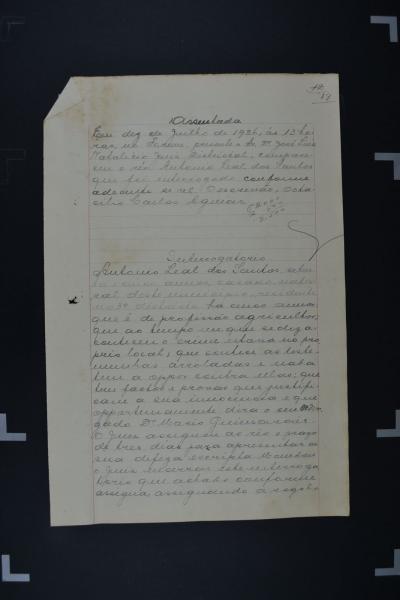 Assentada
Em dez de Julho de 1926, ás 13 ho
ras, no Forum, presente o Sr. Dr. José Luiz
Juiz Districtal, compare
ceu o réo Antonio Leal dos Santos
que foi interrogado conforme
adeante se vê. O escrivão, Octa
cilio Carlos Aguiar
Interrogatorio
Antonio Leal dos Santos,
annos, casado, natu
ral deste municipio, residente
no 3º districto ha annos
que é de profissão agricultor;
que ao tempo em que se diz a
conteceu o crime estava no pro
prio local; que conhece as teste
munhas arroladas e nada
tem a oppor contra ellas; que
tem factos e provas que justifi
cam a sua innocencia e que
opportunamente dirá o seu advo
gado Dr. Mario Guimarães.
O Juiz assignou ao réo o prazo
de tres dias para apresentar a
sua defeza escripta. Mandou
o Juiz encerrar este interroga
torio que achado conforme
assigna, assignando a rogo